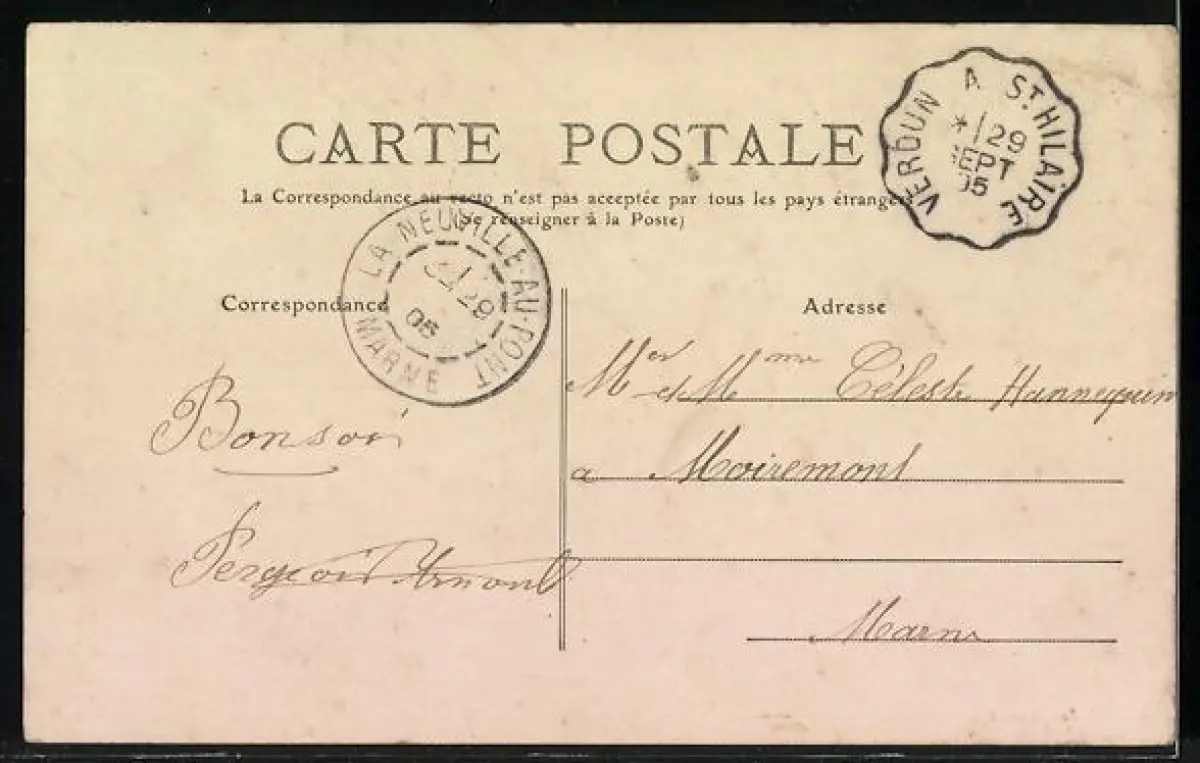 CARTE POSTALE
La Correspondance au recto n'est pas acceptée par tous les pays étrangers
(Se renseigner à la Poste)
VERDUN A ST HILAIRE
* 29
SEPT
05
LA NEUVILLE-AU-PONT
MARNE
29
05
Correspondance
Adresse
Mer et Mme Céleste Hannequin
a Moiremont
Marne
Bonsoir
Arnould